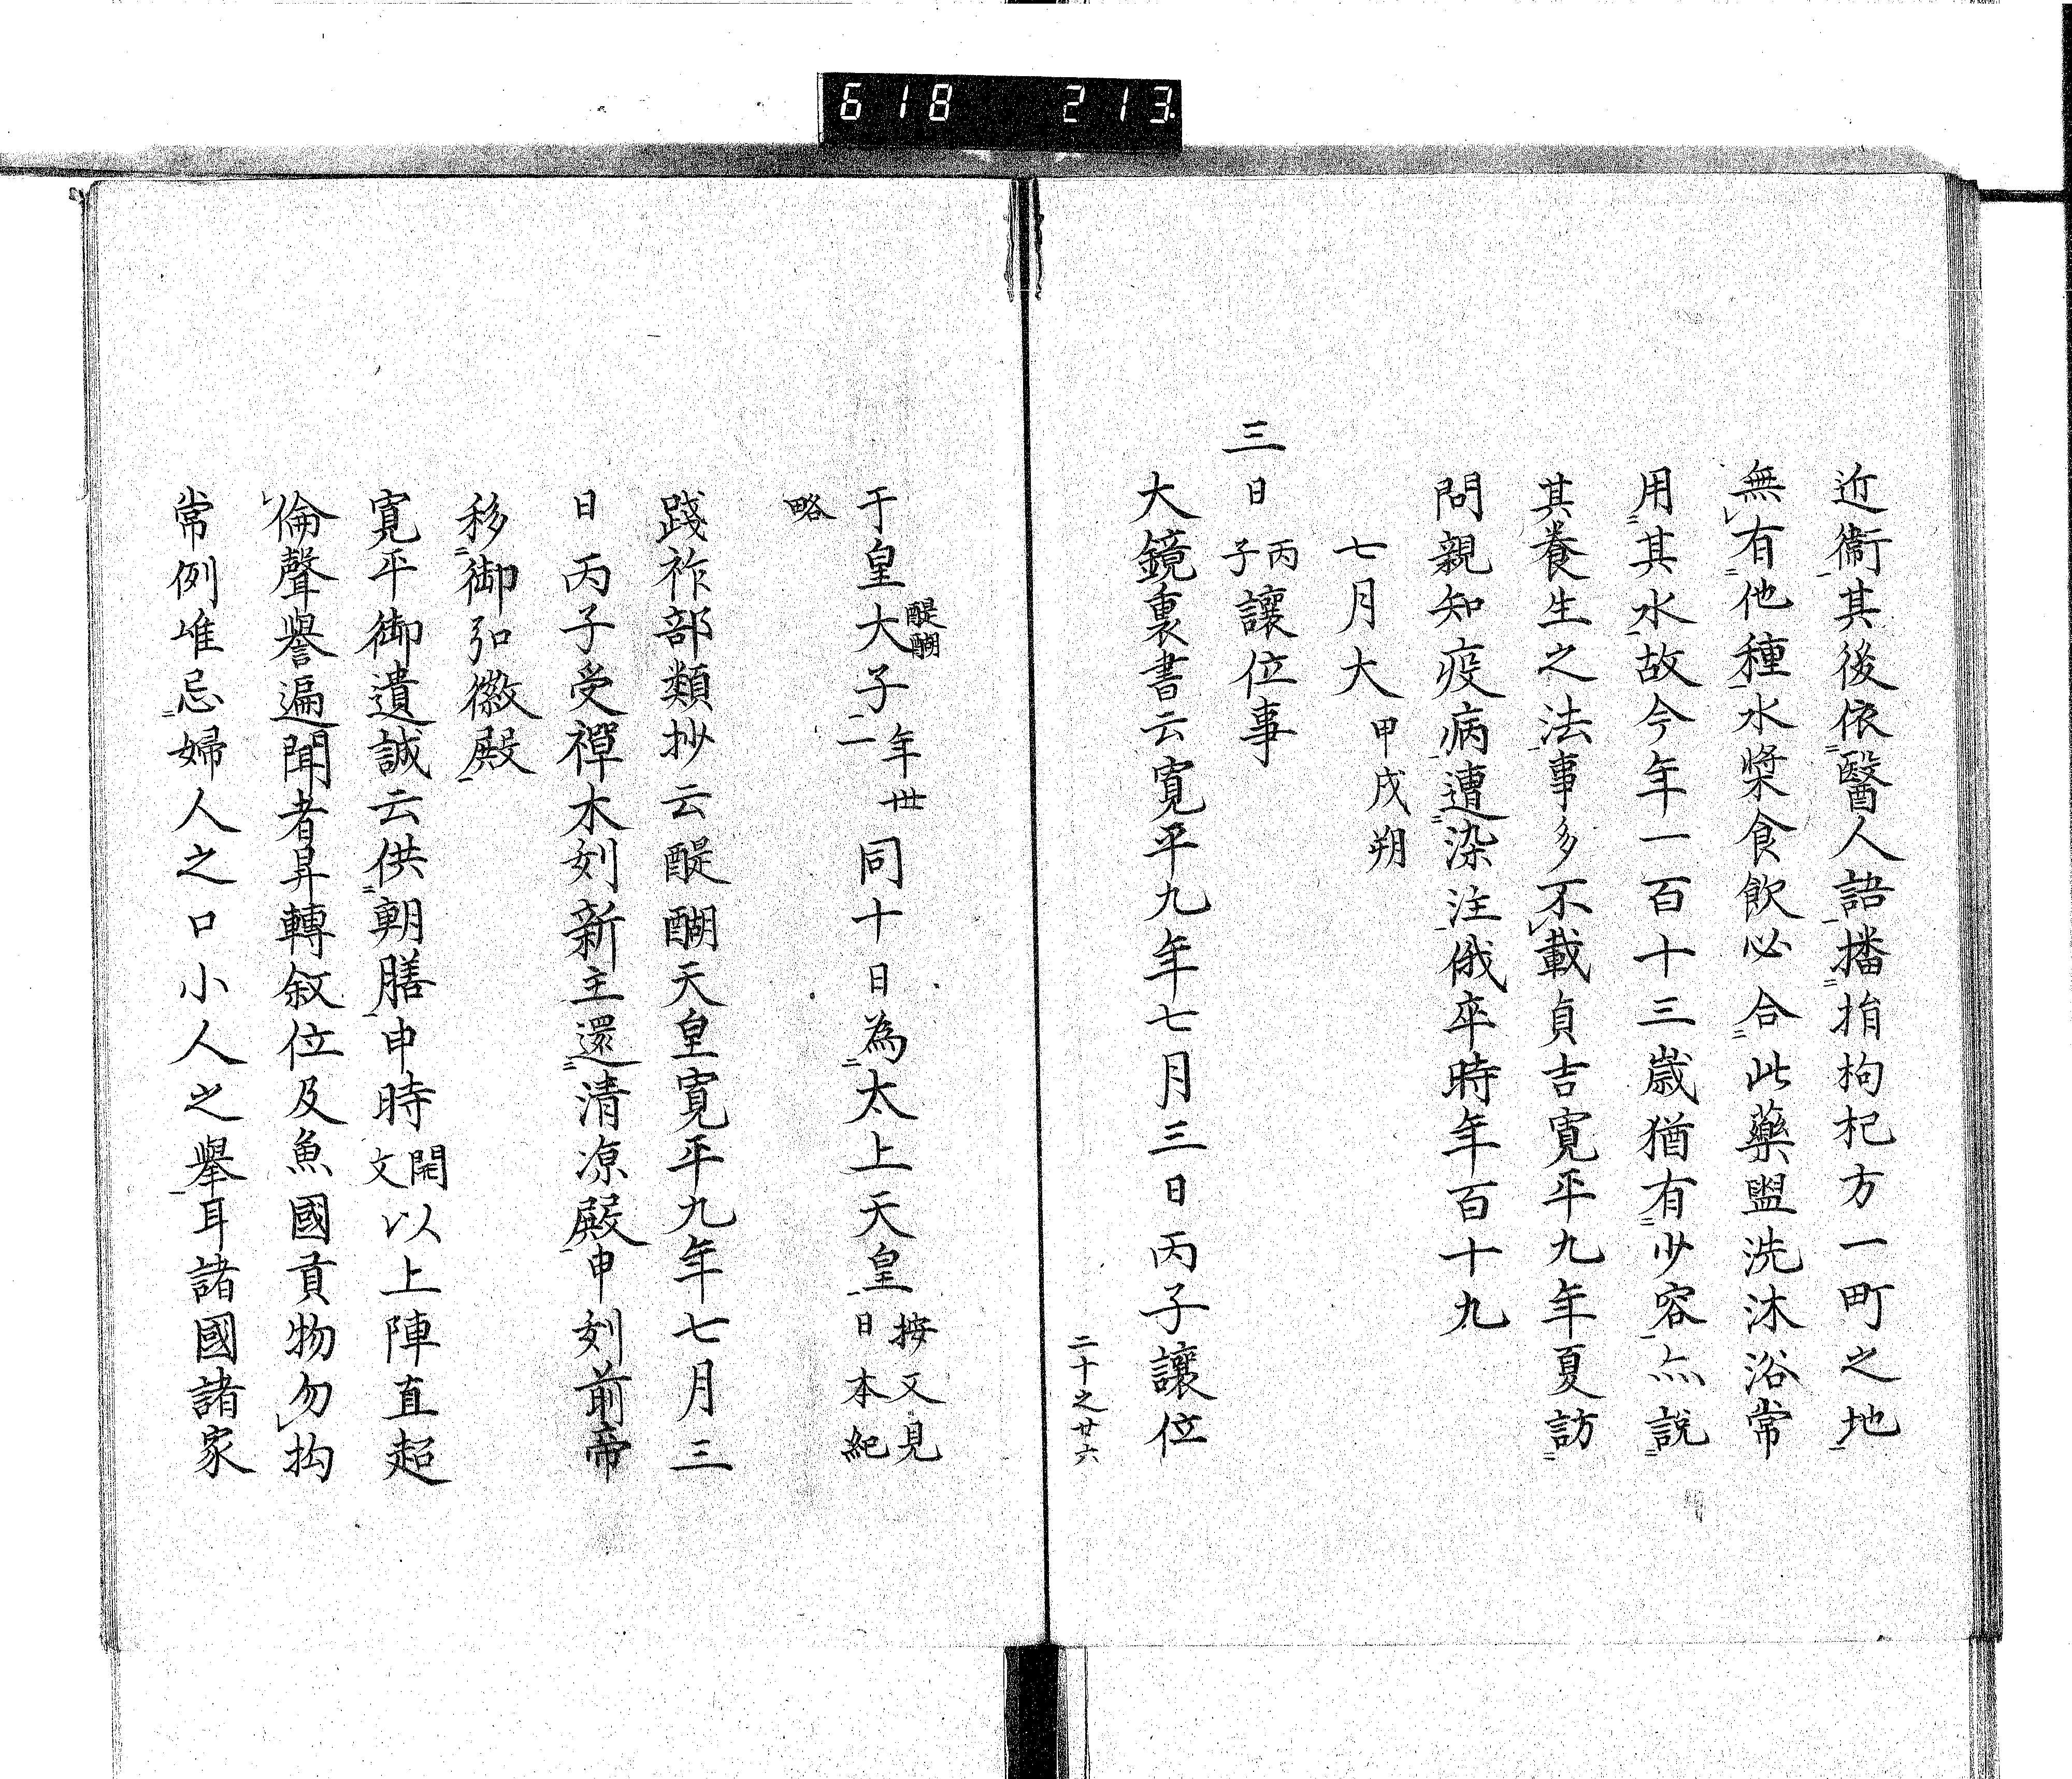 618 213
近衞其後依醫人語播揁枸杞方一町之地
無有他種水漿食飲必合此藥盥洗沐浴常
用其水故今年一百十三歳猶有少容亦説
其養生之法事多不載貞吉寛平九年夏訪
問親知疫病遭染注俄卒時年百十九
七月大 甲戌朔
三日 丙子 讓位事
大鏡裏書云寛平九年七月三日丙子讓位
二十之廿六
于皇大子 醍醐 年卅二 同十日為太上天皇 按又見日本紀
略
踐祚部類抄云醍醐天皇寛平九年七月三
日丙子受禪木刻新主還清凉殿申刻前帝
移御弘徽殿
寛平御遺誡云供朝膳申時 閑文 以上陣直超
倫聲譽遍聞者昇轉叙位及魚國貢物勿拘
常例唯忌婦人之口小人之擧耳諸國諸家